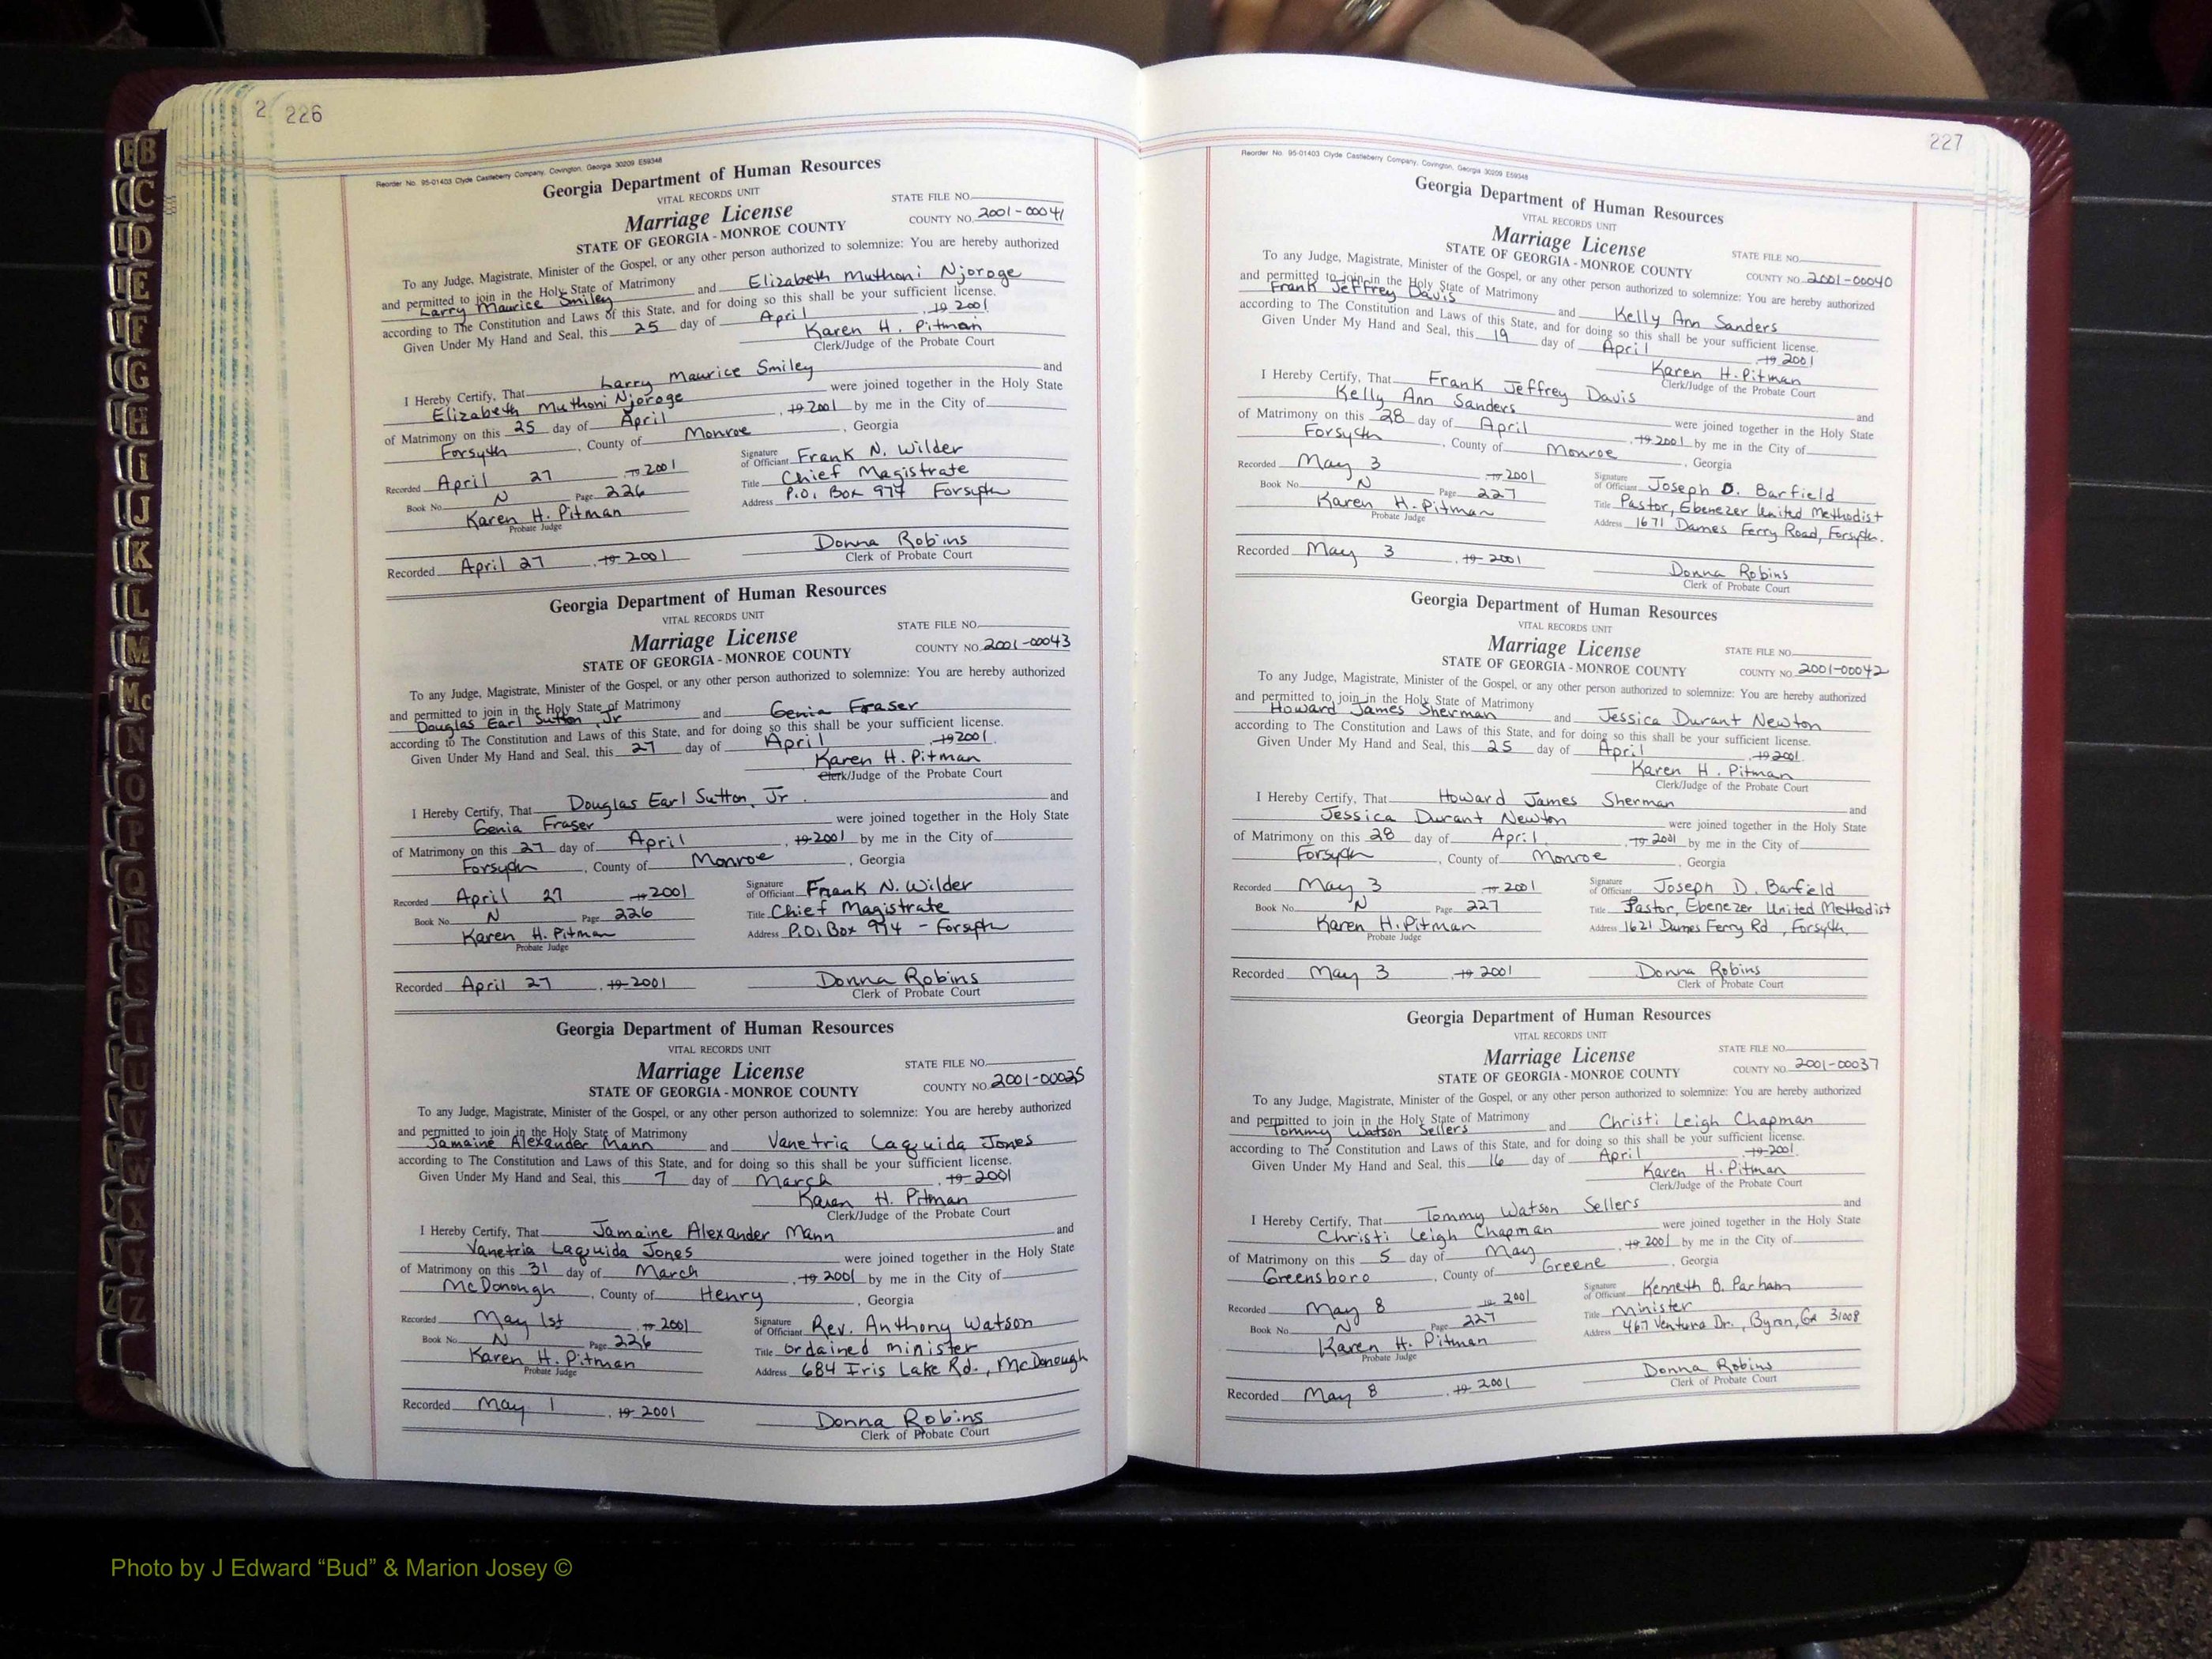 2 226
Reorder No. 95-01403 Clyde Castleberry Company, Covington, Georgia 30209 E59348
Georgia Department of Human Resources
VITAL RECORDS UNIT
STATE FILE NO.
Marriage License
COUNTY NO. 2001-00041
STATE OF GEORGIA - MONROE COUNTY
To any Judge, Magistrate, Minister of the Gospel, or any other person authorized to solemnize: You are hereby authorized
and permitted to join in the Holy State of Matrimony
Larry Maurice Smiley and Elizabeth Muthoni Njoroge
according to The Constitution and Laws of this State, and for doing so this shall be your sufficient license.
Given Under My Hand and Seal, this 25 day of April , 19 2001
Karen H. Pitman
Clerk/Judge of the Probate Court
I Hereby Certify, That Larry Maurice Smiley and
Elizabeth Muthoni Njoroge were joined together in the Holy State
of Matrimony on this 25 day of April , 19 2001 by me in the City of
Forsyth , County of Monroe , Georgia
Recorded April 27 19 2001
Signature of Officiant Frank N. Wilder
Book No. N Page 226
Title Chief Magistrate
Karen H. Pitman
Address P.O. Box 974 Forsyth
Probate Judge
Recorded April 27 , 19 2001
Donna Robins
Clerk of Probate Court
Georgia Department of Human Resources
VITAL RECORDS UNIT
STATE FILE NO.
Marriage License
COUNTY NO. 2001-00043
STATE OF GEORGIA - MONROE COUNTY
To any Judge, Magistrate, Minister of the Gospel, or any other person authorized to solemnize: You are hereby authorized
and permitted to join in the Holy State of Matrimony
Douglas Earl Sutton, Jr and Genia Fraser
according to The Constitution and Laws of this State, and for doing so this shall be your sufficient license.
Given Under My Hand and Seal, this 27 day of April , 19 2001
Karen H. Pitman
Clerk/Judge of the Probate Court
I Hereby Certify, That Douglas Earl Sutton, Jr. and
Genia Fraser were joined together in the Holy State
of Matrimony on this 27 day of April , 19 2001 by me in the City of
Forsyth , County of Monroe , Georgia
Recorded April 27 19 2001
Signature of Officiant Frank N. Wilder
Book No. N Page 226
Title Chief Magistrate
Karen H. Pitman
Address P.O. Box 974 - Forsyth
Probate Judge
Recorded April 27 , 19 2001
Donna Robins
Clerk of Probate Court
Georgia Department of Human Resources
VITAL RECORDS UNIT
STATE FILE NO.
Marriage License
COUNTY NO. 2001-00025
STATE OF GEORGIA - MONROE COUNTY
To any Judge, Magistrate, Minister of the Gospel, or any other person authorized to solemnize: You are hereby authorized
and permitted to join in the Holy State of Matrimony
Jamaine Alexander Mann and Vanetria Laquida Jones
according to The Constitution and Laws of this State, and for doing so this shall be your sufficient license.
Given Under My Hand and Seal, this 7 day of March , 19 2001
Karen H. Pitman
Clerk/Judge of the Probate Court
I Hereby Certify, That Jamaine Alexander Mann and
Vanetria Laquida Jones were joined together in the Holy State
of Matrimony on this 31 day of March , 19 2001 by me in the City of
McDonough , County of Henry , Georgia
Recorded May 1st 19 2001
Signature of Officiant Rev. Anthony Watson
Book No. N Page 226
Title ordained minister
Karen H. Pitman
Address 684 Iris Lake Rd., McDonough
Probate Judge
Recorded May 1 , 19 2001
Donna Robins
Clerk of Probate Court
227
Reorder No. 95-01403 Clyde Castleberry Company, Covington, Georgia 30209 E59348
Georgia Department of Human Resources
VITAL RECORDS UNIT
Marriage License
STATE FILE NO.
STATE OF GEORGIA - MONROE COUNTY
COUNTY NO. 2001-00040
To any Judge, Magistrate, Minister of the Gospel, or any other person authorized to solemnize: You are hereby authorized
and permitted to join in the Holy State of Matrimony
Frank Jeffrey Davis and Kelly Ann Sanders
according to The Constitution and Laws of this State, and for doing so this shall be your sufficient license.
Given Under My Hand and Seal, this 19 day of April , 19 2001
Karen H. Pitman
Clerk/Judge of the Probate Court
I Hereby Certify, That Frank Jeffrey Davis and
Kelly Ann Sanders were joined together in the Holy State
of Matrimony on this 28 day of April , 19 2001 by me in the City of
Forsyth , County of Monroe , Georgia
Recorded May 3 19 2001
Signature of Officiant Joseph D. Barfield
Book No. N Page 227
Title Pastor, Ebenezer United Methodist
Karen H. Pitman
Address 1671 Dames Ferry Road, Forsyth.
Probate Judge
Recorded May 3 , 19 2001
Donna Robins
Clerk of Probate Court
Georgia Department of Human Resources
VITAL RECORDS UNIT
Marriage License
STATE FILE NO.
STATE OF GEORGIA - MONROE COUNTY
COUNTY NO. 2001-00042
To any Judge, Magistrate, Minister of the Gospel, or any other person authorized to solemnize: You are hereby authorized
and permitted to join in the Holy State of Matrimony
Howard James Sherman and Jessica Durant Newton
according to The Constitution and Laws of this State, and for doing so this shall be your sufficient license.
Given Under My Hand and Seal, this 25 day of April , 19 2001
Karen H. Pitman
Clerk/Judge of the Probate Court
I Hereby Certify, That Howard James Sherman and
Jessica Durant Newton were joined together in the Holy State
of Matrimony on this 28 day of April , 19 2001 by me in the City of
Forsyth , County of Monroe , Georgia
Recorded May 3 19 2001
Signature of Officiant Joseph D. Barfield
Book No. N Page 227
Title Pastor, Ebenezer United Methodist
Karen H. Pitman
Address 1621 Dames Ferry Rd, Forsyth,
Probate Judge
Recorded May 3 , 19 2001
Donna Robins
Clerk of Probate Court
Georgia Department of Human Resources
VITAL RECORDS UNIT
STATE FILE NO.
Marriage License
COUNTY NO. 2001-00037
STATE OF GEORGIA - MONROE COUNTY
To any Judge, Magistrate, Minister of the Gospel, or any other person authorized to solemnize: You are hereby authorized
and permitted to join in the Holy State of Matrimony
Tommy Watson Sellers and Christi Leigh Chapman
according to The Constitution and Laws of this State, and for doing so this shall be your sufficient license.
Given Under My Hand and Seal, this 16 day of April , 19 2001
Karen H. Pitman
Clerk/Judge of the Probate Court
I Hereby Certify, That Tommy Watson Sellers and
Christi Leigh Chapman were joined together in the Holy State
of Matrimony on this 5 day of May , 19 2001 by me in the City of
Greensboro , County of Greene , Georgia
Recorded May 8 19 2001
Signature of Officiant Kenneth B. Parham
Book No. N Page 227
Title minister
Karen H. Pitman
Address 467 Ventura Dr., Byron, Ga 31008
Probate Judge
Recorded May 8 , 19 2001
Donna Robins
Clerk of Probate Court
B
C
D
E
F
G
H
I
J
K
L
M
Mc
N
O
P
Q
R
S
T
U
V
W
X
Y
Z
Photo by J Edward “Bud” & Marion Josey ©